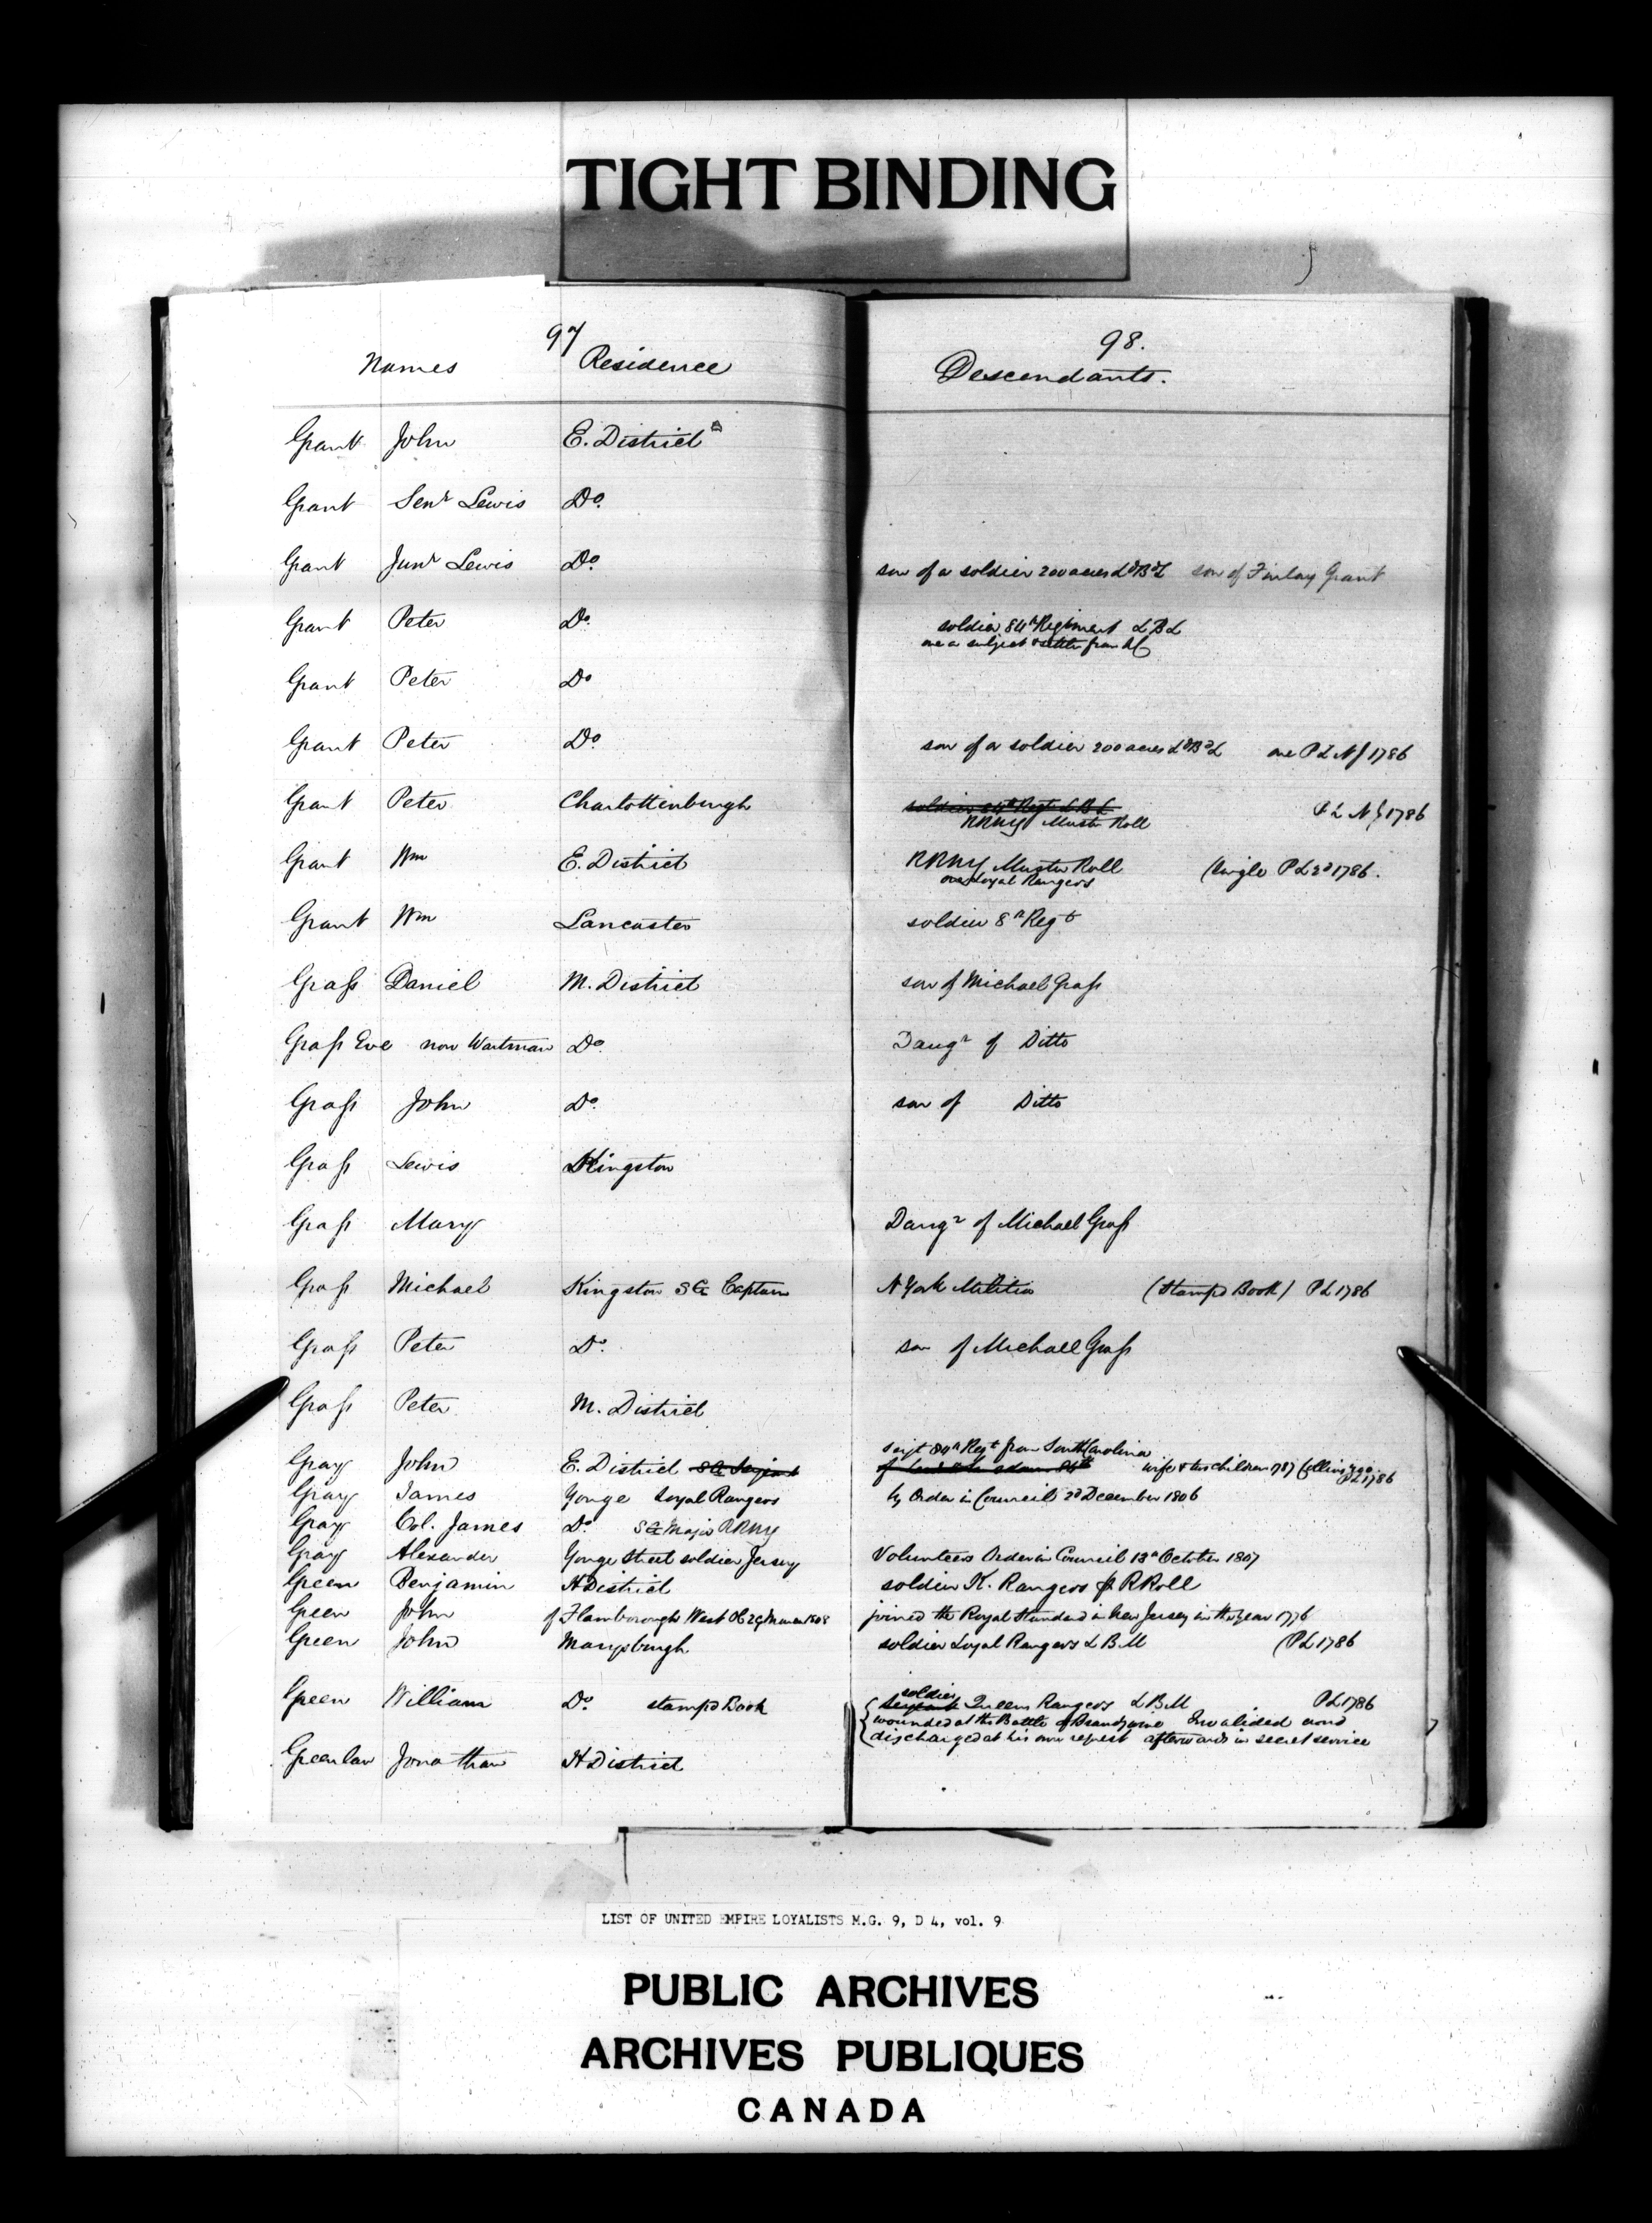 TIGHT BINDING
97
Names Residence
98.
Descendants.
Grant John E. District
Grant Senr Lewis Do.
Grant Junr Lewis Do. son of a soldier 200 acres LdBdL son of Finlay Grant
Grant Peter Do. soldier 84th Regiment L B L
one a subject & settler from
Grant Peter Do
Grant Peter Do. son of a soldier 200 acres LdBdL one P L N 1786
Grant Peter Charlottenburgh soldier 84th Regt L B L P L N 1786
RRNY Muster Roll
Grant Wm E. District RRNY Muster Roll (single P L 2d 1786.
one Loyal Rangers
Grant Wm Lancaster soldier 8th Regt
Graſs Daniel M. District son of Michael Graſs
Graſs Eve now Wartman Do. Daugr of Ditto
Graſs John Do. son of Ditto
Graſs Lewis Kingston
Graſs Mary Daugr of Michael Graſs
Graſs Michael Kingston S G Captain N York Militia (Stamp'd Book) P L 1786
Graſs Peter Do. son of Michael Graſs
Graſs Peter M. District
sergt 84th Regt from South Carolina
Gray John E. District wife & two children 1787 P L 1786
Gray James Yonge Loyal Rangers by Order in Council 2d December 1806
Gray Col. James Do. S G Major RRNY
Gray Alexander Yonge Street soldier Jersey Volunteers Order in Council 13th October 1807
Green Benjamin H District soldier K. Rangers P R Roll
Green John of Flamborough West 1808 joined the Royal Standard in New Jersey in the year 1776
Green John Marysburgh soldier Loyal Rangers L B M (P L 1786
soldier
Green William Do. stamp'd Book Queens Rangers L B M P L 1786
wounded at the Battle of Brandywine Invalided and
discharged at his own request afterwards in secret service
Greenlaw Jonathan H District
LIST OF UNITED EMPIRE LOYALISTS M.G. 9, D 4, vol. 9
PUBLIC ARCHIVES
ARCHIVES PUBLIQUES
CANADA